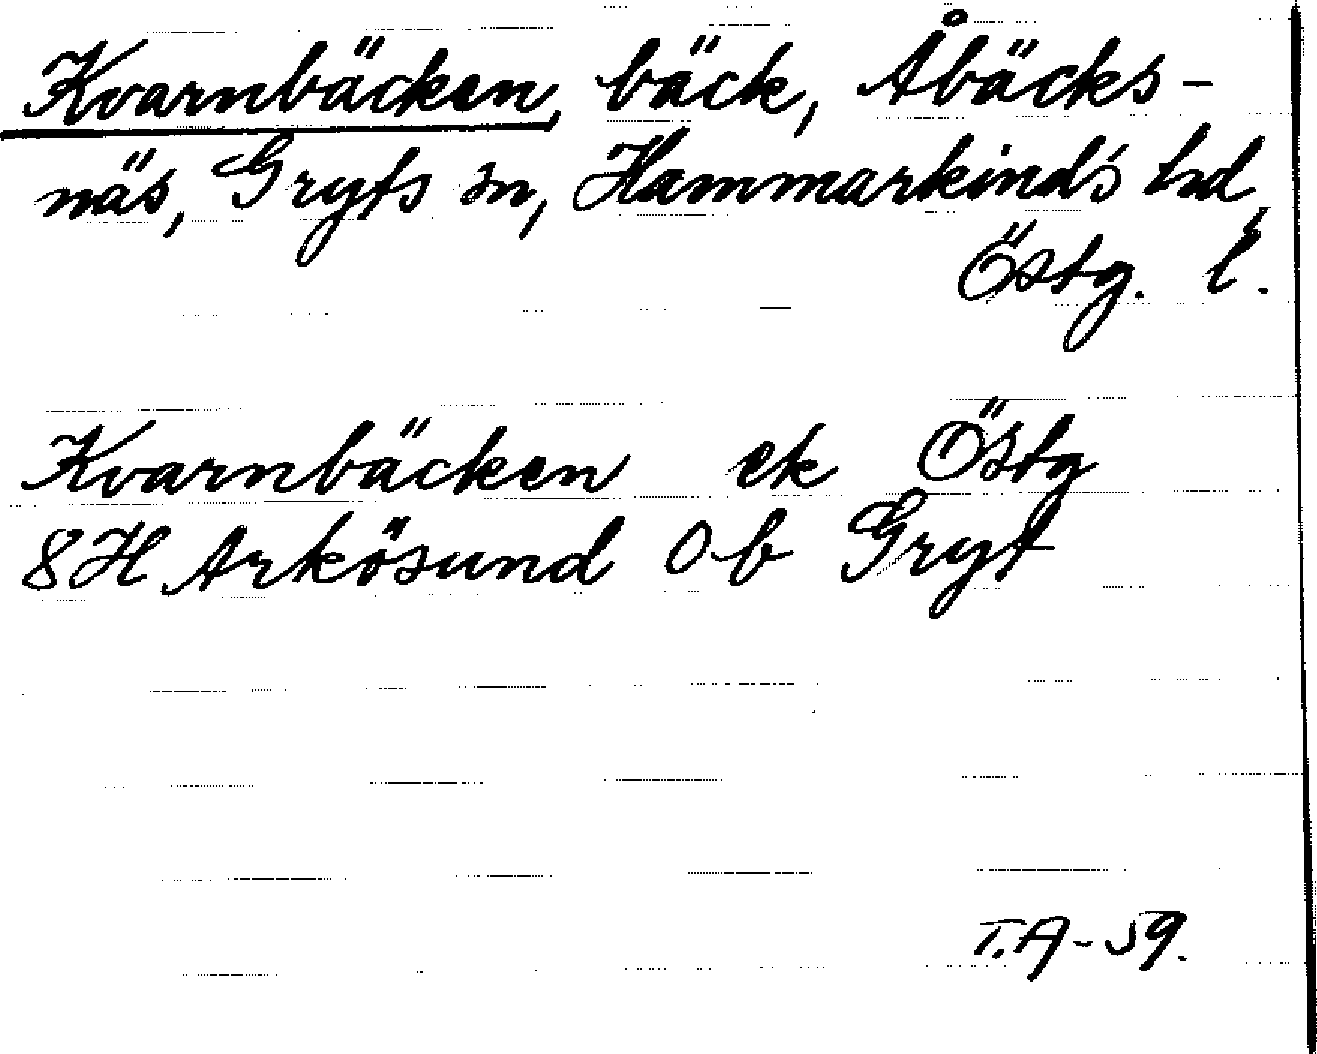 Kvarnbäcken, bäck, Åbäcks-
näs, Gryts sn, Hammarkinds hd,
Östg. l.
Kvarnbäcken ek Östg
8H Arkösund 0 b Gryt
T.A-59.